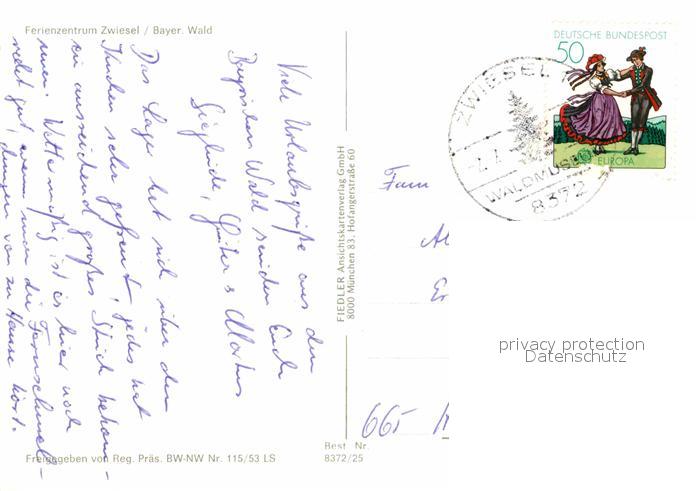 Ferienzentrum Zwiesel / Bayer. Wald
Viele Urlaubsgrüße aus dem
Bayrischen Wald senden Euch
Sieglinde, Günter & Markus
Das Lager hat sich über den
Kuchen sehr gefreut, jedes hat
ein ausreichend großes Stück bekom-
men. Wettermäßig ist es hier noch
recht gut, wenn man die Fernschmelt-
dungen von zu Hause hört.
Freigegeben von Reg. Präs. BW-NW Nr. 115/53 LS
FIEDLER Ansichtskartenverlag GmbH
8000 München 83, Hofangerstraße 60
Best. Nr.
8372/25
DEUTSCHE BUNDESPOST
50
EUROPA
ZWIESEL
WALDMUSEUM
8372
Fam
665
privacy protection
Datenschutz